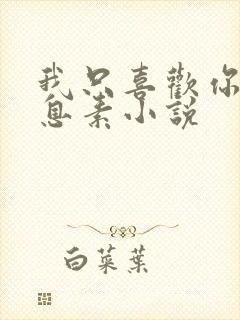 我只喜歡你
息素小說
白菜葉